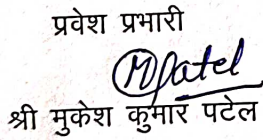 प्रवेश प्रभारी
MPatel
श्री मुकेश कुमार पटेल